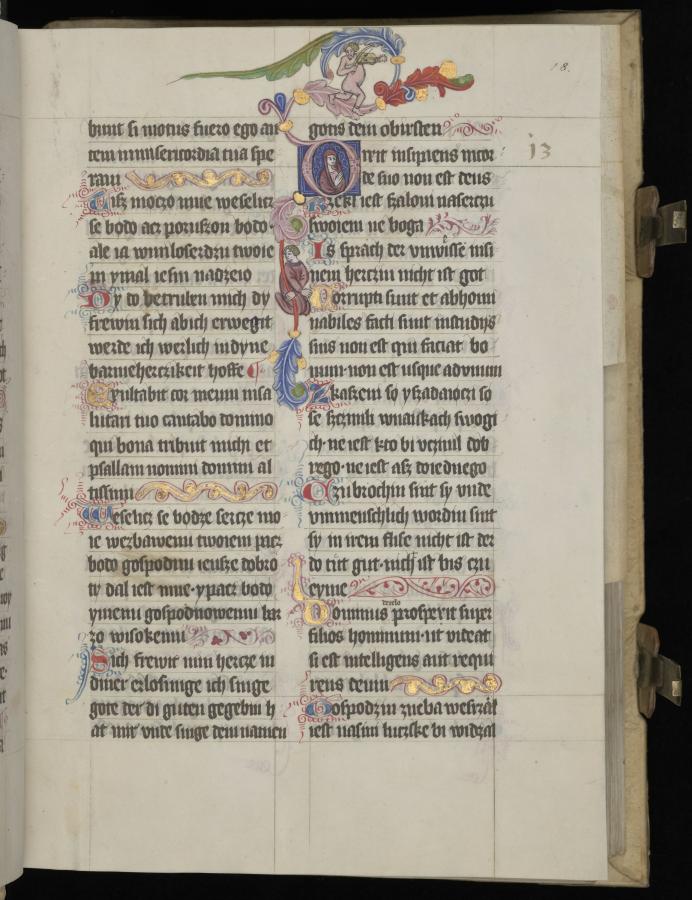 bunt si motus fuero ego au
tem in misericordia tua spe
raui
Gisz moczo mnie weselicz
se bodo acz poruszon bodo·
ale ia w miloserdzu twoie
m ymal iesm nadzeio
Dy do betruben mich dy
frewin sich abich erwegit
werde ich werlich in dyne
barmeherczikeit hoffe
Exultabit cor meum in sa
lutari tuo cantabo domino
qui bona tribuit michi et
psallam nomini domini al
tissimi
Weselicz se bodze sercze mo
ie w zbawenu twoiem pacz
bodo gospodnu ieusze dobro
ty dal iest mne· y pacz bodo
ymenu gospodnowemu bar
zo wisokemu
Sich frewit min hercze in
diner erlosunge ich singe
gote der di guten gegebin h
at mir vnde singe dem namen
18.
gotis dem obirsten
Dixit insipiens in cor
de suo non est deus
Rzekl iest szaloni w serczu
swoiem ne boga
Is sprach der vnwisse in si
nem herczin nicht ist got
Corrupti sunt et abhomi
nabiles facti sunt in studijs
suis non est qui faciat bo
num· non est usque ad vnum
Zkaszeni so y szadaioci so
se sczinili w naukach swogi
ch· ne iest kto bi vczinil dob
rego· ne iest asz do iednego
Czubrochin sint sy vnde
vnmenschlich wordin sint
sy in irem flise nicht ist der
do tut gut· nich ist bis czu
eyme
Dominus prospexit super
de celo
filios hominum· ut videat
si est intelligens aut requi
rens deum
Gospodzin z neba weszrzal
iest na sini luczske bi widzal
13